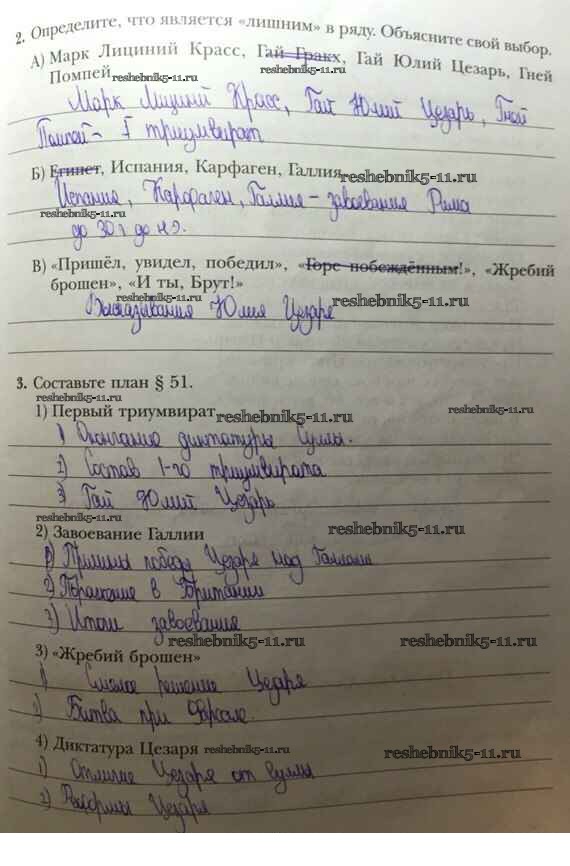 2. Определите, что является «лишним» в ряду. Объясните свой выбор.
А) Марк Лициний Красс, Гай Гракх, Гай Юлий Цезарь, Гней
Помпей reshebnik5-11.ru reshebnik5-11.ru
Марк Лициний Красс, Гай Юлий Цезарь, Гней
Помпей – I триумвират
Б) Египет, Испания, Карфаген, Галлия reshebnik5-11.ru
Испания, Карфаген, Галлия – завоевания Рима
reshebnik5-11.ru
до 30 г до н.э.
В) «Пришёл, увидел, победил», «Горе побеждённым!», «Жребий
брошен», «И ты, Брут!»
reshebnik5-11.ru reshebnik5-11.ru
Высказывания Юлия Цезаря
3. Составьте план § 51.
reshebnik5-11.ru
1) Первый триумвират reshebnik5-11.ru reshebnik5-11.ru
1) Окончание диктатуры Суллы.
2) Состав 1-го триумвирата
3) Гай Юлий Цезарь
reshebnik5-11.ru
2) Завоевание Галлии reshebnik5-11.ru
1) Причины победы Цезаря над Галлами
2) Поражение в Британии
3) Итоги завоевания
reshebnik5-11.ru reshebnik5-11.ru
3) «Жребий брошен»
1) Смелое решение Цезаря
2) Битва при Фарсале.
4) Диктатура Цезаря reshebnik5-11.ru reshebnik5-11.ru
1) Отличие Цезаря от Суллы
2) Реформы Цезаря